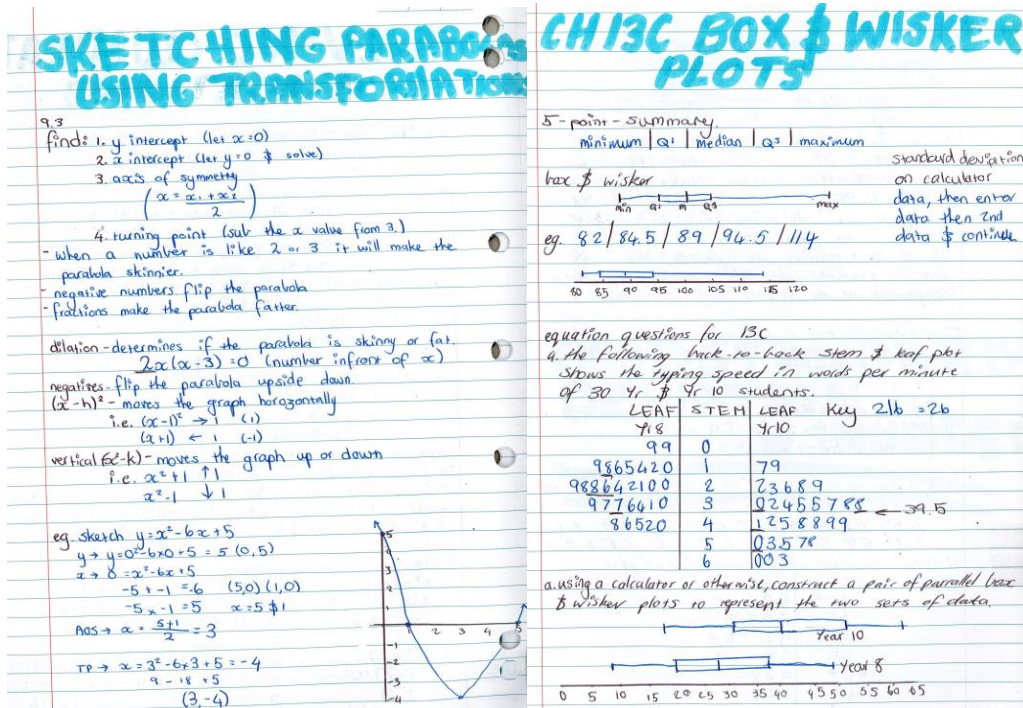 SKETCHING PARABOLAS
USING TRANSFORMATIONS
9.3
find: 1. y intercept (let x=0)
2. x intercept (let y=0 & solve)
3. axis of symmetry
(x = x₁ + x₂ / 2)
4. turning point (sub the x value from 3.)
- when a number is like 2 or 3 it will make the
parabola skinnier.
- negative numbers flip the parabola
- fractions make the parabola fatter.
dilation - determines if the parabola is skinny or fat.
2x(x-3)=0 (number infront of x)
negatives - flip the parabola upside down.
(x-h)² - moves the graph horozontally
i.e. (x-1)² → 1 (1)
(x+1) ← 1 (-1)
vertical (x²-k) - moves the graph up or down
i.e. x²+1 ↑1
x²-1 ↓1
eg. sketch y=x²-6x+5
y→ y=0²-6x0+5 = 5 (0,5)
x→ 0=x²-6x+5
-5 + -1 = -6 (5,0) (1,0)
-5 x -1 = 5 x=5 & 1
AOS → x = 5+1 / 2 = 3
TP → x = 3²-6x3+5 = -4
9 - 18 + 5
(3,-4)
5
3
2
1
1 2 3 4 5
-1
-2
-3
-4
CH 13C BOX & WISKER
PLOTS
5-point-summary.
minimum | Q1 | median | Q3 | maximum
standard deviation
on calculator
data, then enter
data then 2nd
data & continue
box & wisker
min Q1 m Q3 max
eg. 82/84.5/89/94.5/114
80 85 90 95 100 105 110 115 120
equation questions for 13C
4. the following back-to-back stem & leaf plot
shows the typing speed in words per minute
of 30 Yr 8 & Yr 10 students.
LEAF STEM LEAF Key 2|6 = 26
Yr8 Yr10
99 0
9865420 1 79
988642100 2 23689
9776410 3 02455788 ← 39.5
86520 4 1258899
5 03578
6 003
a. using a calculator or otherwise, construct a pair of parrallel box
& wisker plots to represent the two sets of data.
Year 10
Year 8
0 5 10 15 20 25 30 35 40 45 50 55 60 65